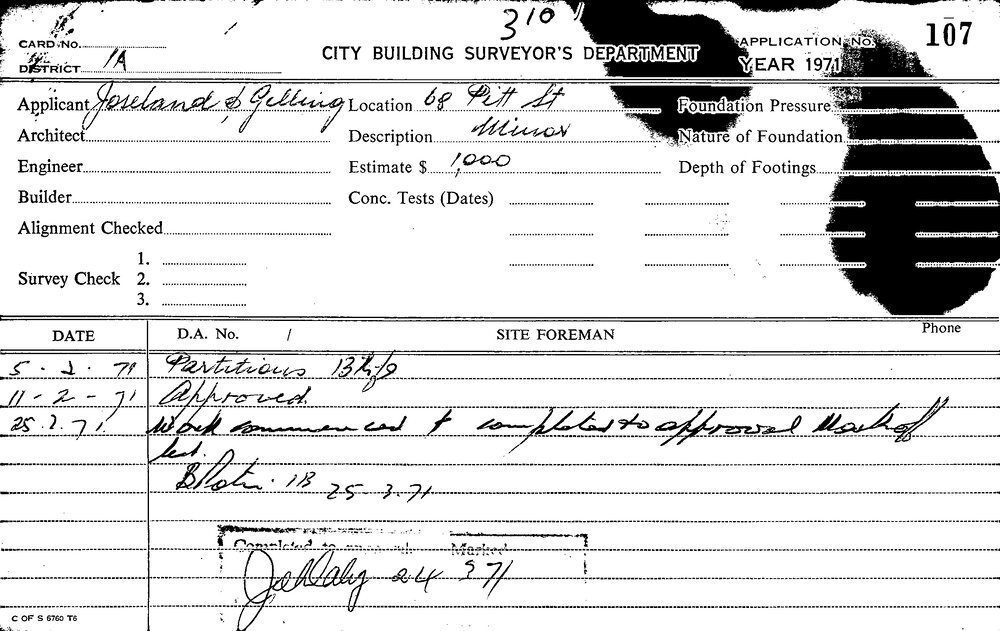 310
CARD No.
CITY BUILDING SURVEYOR'S DEPARTMENT
APPLICATION No. 107
DISTRICT 1A
YEAR 1971
Applicant Joseland & Gilling Location 68 Pitt St Foundation Pressure
Architect Description Minor Nature of Foundation
Engineer Estimate $ 1,000 Depth of Footings
Builder Conc. Tests (Dates)
Alignment Checked
1.
Survey Check 2.
3.
DATE D.A. No. / SITE FOREMAN Phone
5.2.71 Partitions 13th flo
11-2-71 Approved
25.2.71. Work commenced & completed to approval Mark off
25-3-71
Completed to Marked
24 3 71
C OF S 6760 T6